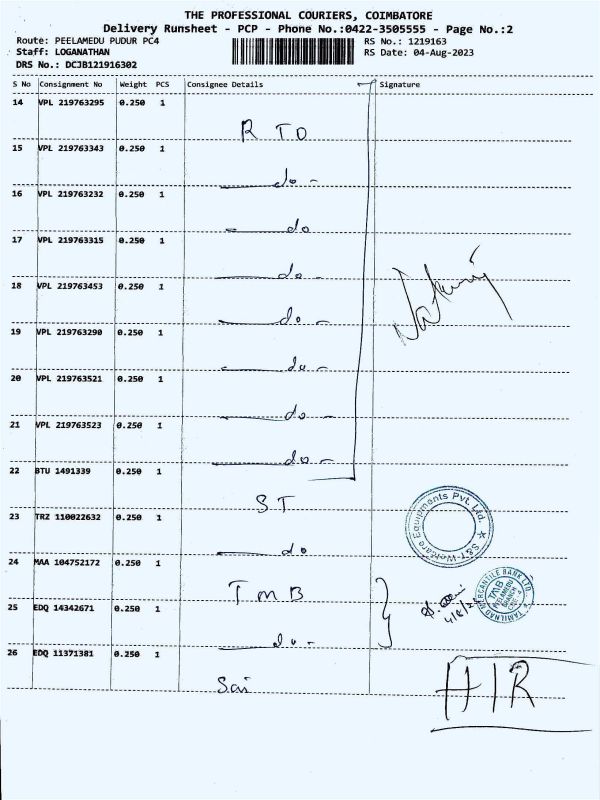 THE PROFESSIONAL COURIERS, COIMBATORE
Delivery Runsheet - PCP - Phone No.:0422-3505555 - Page No.:2
Route: PEELAMEDU PUDUR PC4 RS No.: 1219163
Staff: LOGANATHAN RS Date: 04-Aug-2023
DRS No.: DCJB121916302
S No Consignment No Weight PCS Consignee Details Signature
14 VPL 219763295 0.250 1
R T O
15 VPL 219763343 0.250 1
do -
16 VPL 219763232 0.250 1
do
17 VPL 219763315 0.250 1
do -
18 VPL 219763453 0.250 1
do -
19 VPL 219763290 0.250 1
do -
20 VPL 219763521 0.250 1
do -
21 VPL 219763523 0.250 1
do -
22 BTU 1491339 0.250 1
S T
S&T Welcare Equipments Pvt. Ltd.
23 TRZ 110022632 0.250 1
do
24 MAA 104752172 0.250 1
T M B
TAMILNAD MERCANTILE BANK LTD.
TMB
PEELAMEDU
BRANCH
CBE
25 EDQ 14342671 0.250 1
do -
26 EDQ 11371381 0.250 1
Sai
HIR